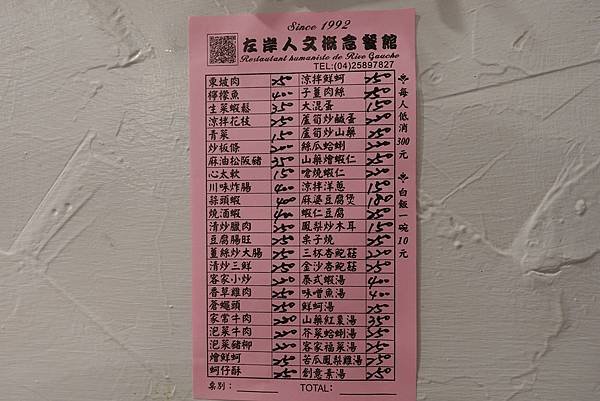 Since 1992
左岸人文概念餐館
Restaurant humaniste de Rive Gauche
TEL:(04)25897827
東坡肉 250 涼拌鮮蚵 250
檸檬魚 400 子薑肉絲 250
生菜蝦鬆 350 大混蛋 150
涼拌花枝 250 蘆筍炒鹹蛋 220
青菜 150 蘆筍炒山藥 250
炒板條 200 絲瓜蛤蜊 200
麻油松阪豬 350 山藥燴蝦仁 250
心太軟 150 嗆燒蝦仁 220
川味炸腸 400 涼拌洋蔥 150
蒜頭蝦 400 麻婆豆腐煲 180
燒酒蝦 400 蝦仁豆腐 250
清炒臘肉 250 鳳梨炒木耳 150
豆腐腸旺 250 栗子燒 250
薑絲炒大腸 250 三杯杏鮑菇 220
清炒三鮮 250 金沙杏鮑菇 250
客家小炒 220 泰式蝦湯 400
香草雞肉 250 味噌魚湯 400
蒼蠅頭 250 鮮蚵湯 250
家常牛肉 220 山藥紅棗湯 350
泡菜牛肉 220 芥菜蛤蜊湯 350
泡菜豬柳 220 客家福菜湯 250
燴鮮蚵 250 苦瓜鳳梨雞湯 350
蚵仔酥 250 創意素湯 250
桌別： TOTAL:
※每人低消300元
※白飯一碗10元